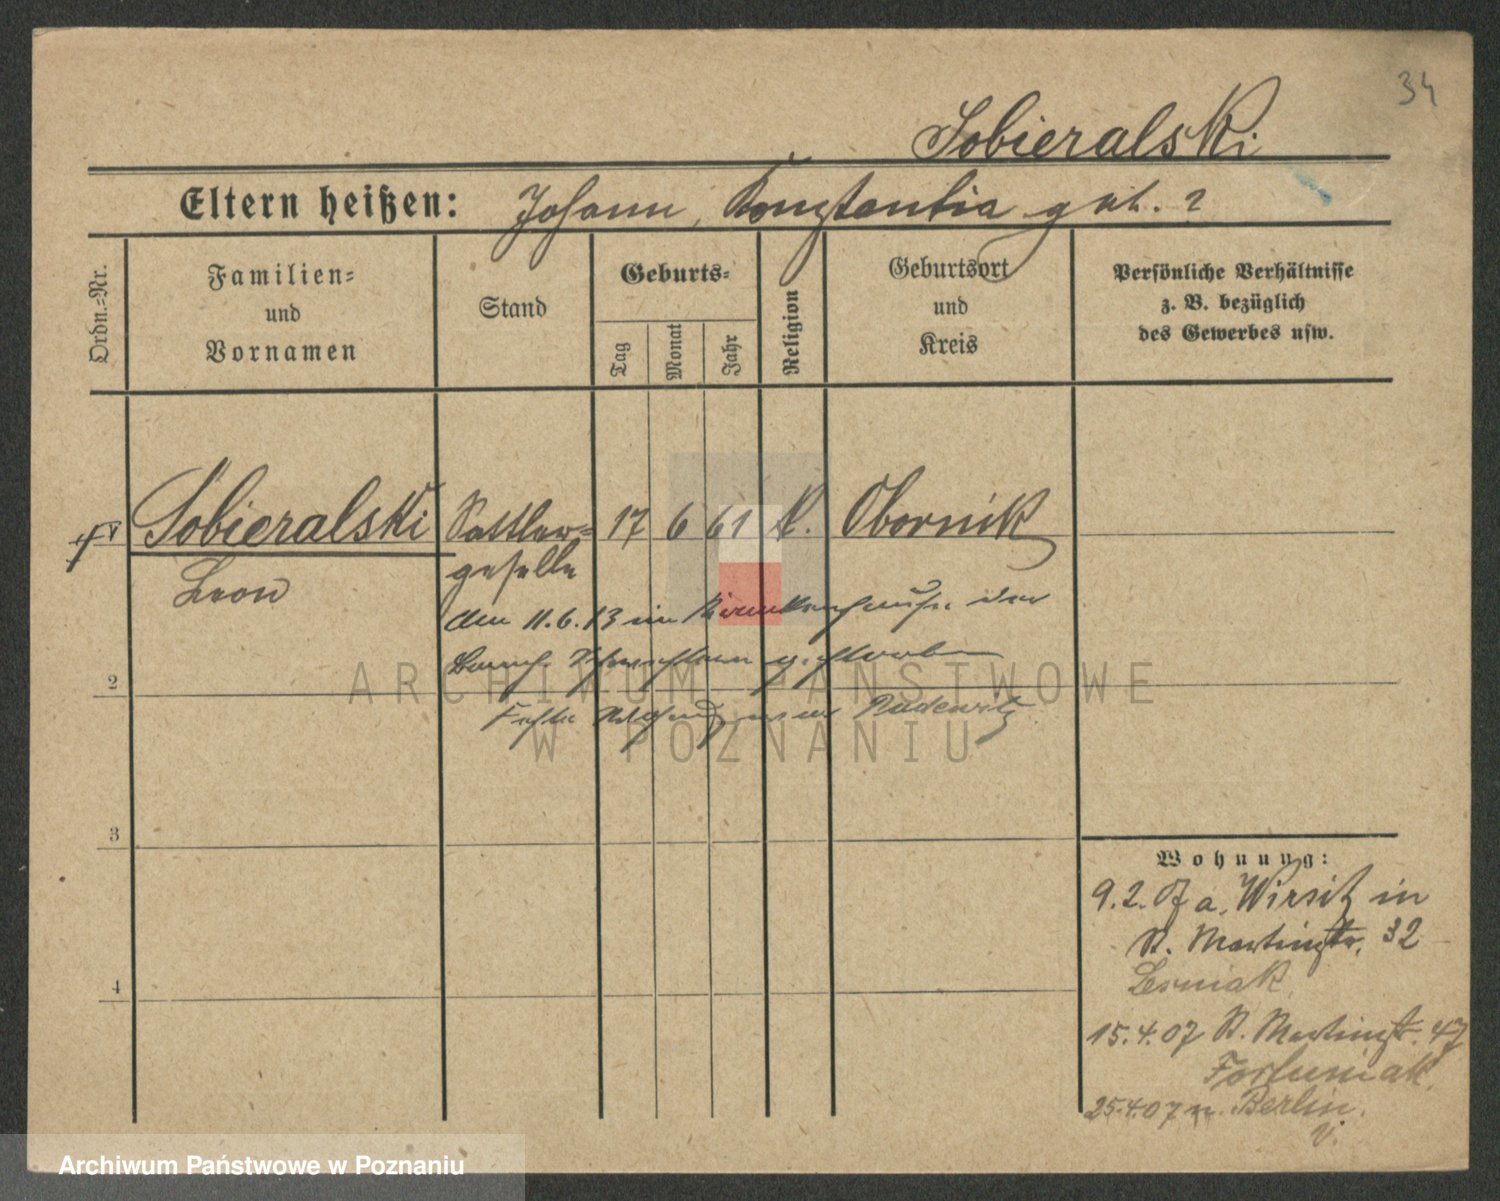 34
Sobieralski
Eltern heißen: Johann, Konstantia geb. ?
Ordn.-Nr.
Familien-
und
Vornamen
Stand
Geburts-
Tag
Monat
Jahr
Religion
Geburtsort
und
Kreis
Persönliche Verhältnisse
z. B. bezüglich
des Gewerbes usw.
Sobieralski Sattler- 17 6 61 k. Obornik
geselle
Leon
den 11.6.13 im Krankenhause der
Schwestern gestorben
2
Pudewitz
ARCHIWUM PAŃSTWOWE
W POZNANIU
3
4
Wohnung:
9.2.07 a. Wirsitz in
St. Martinstr. 32
Lesniak
15.4.07 St. Martinstr. 47
25.4.07 n. Berlin.
V.
Archiwum Państwowe w Poznaniu